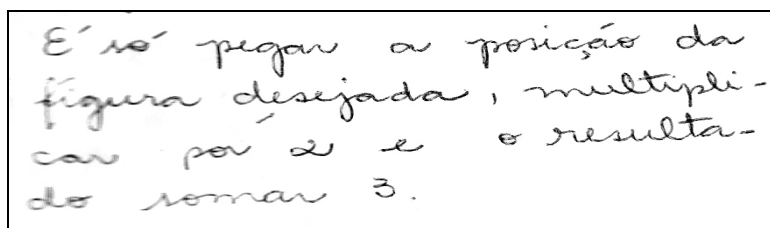 É só pegar a posição da
figura desejada, multipli-
car por 2 e o resulta-
do somar 3.